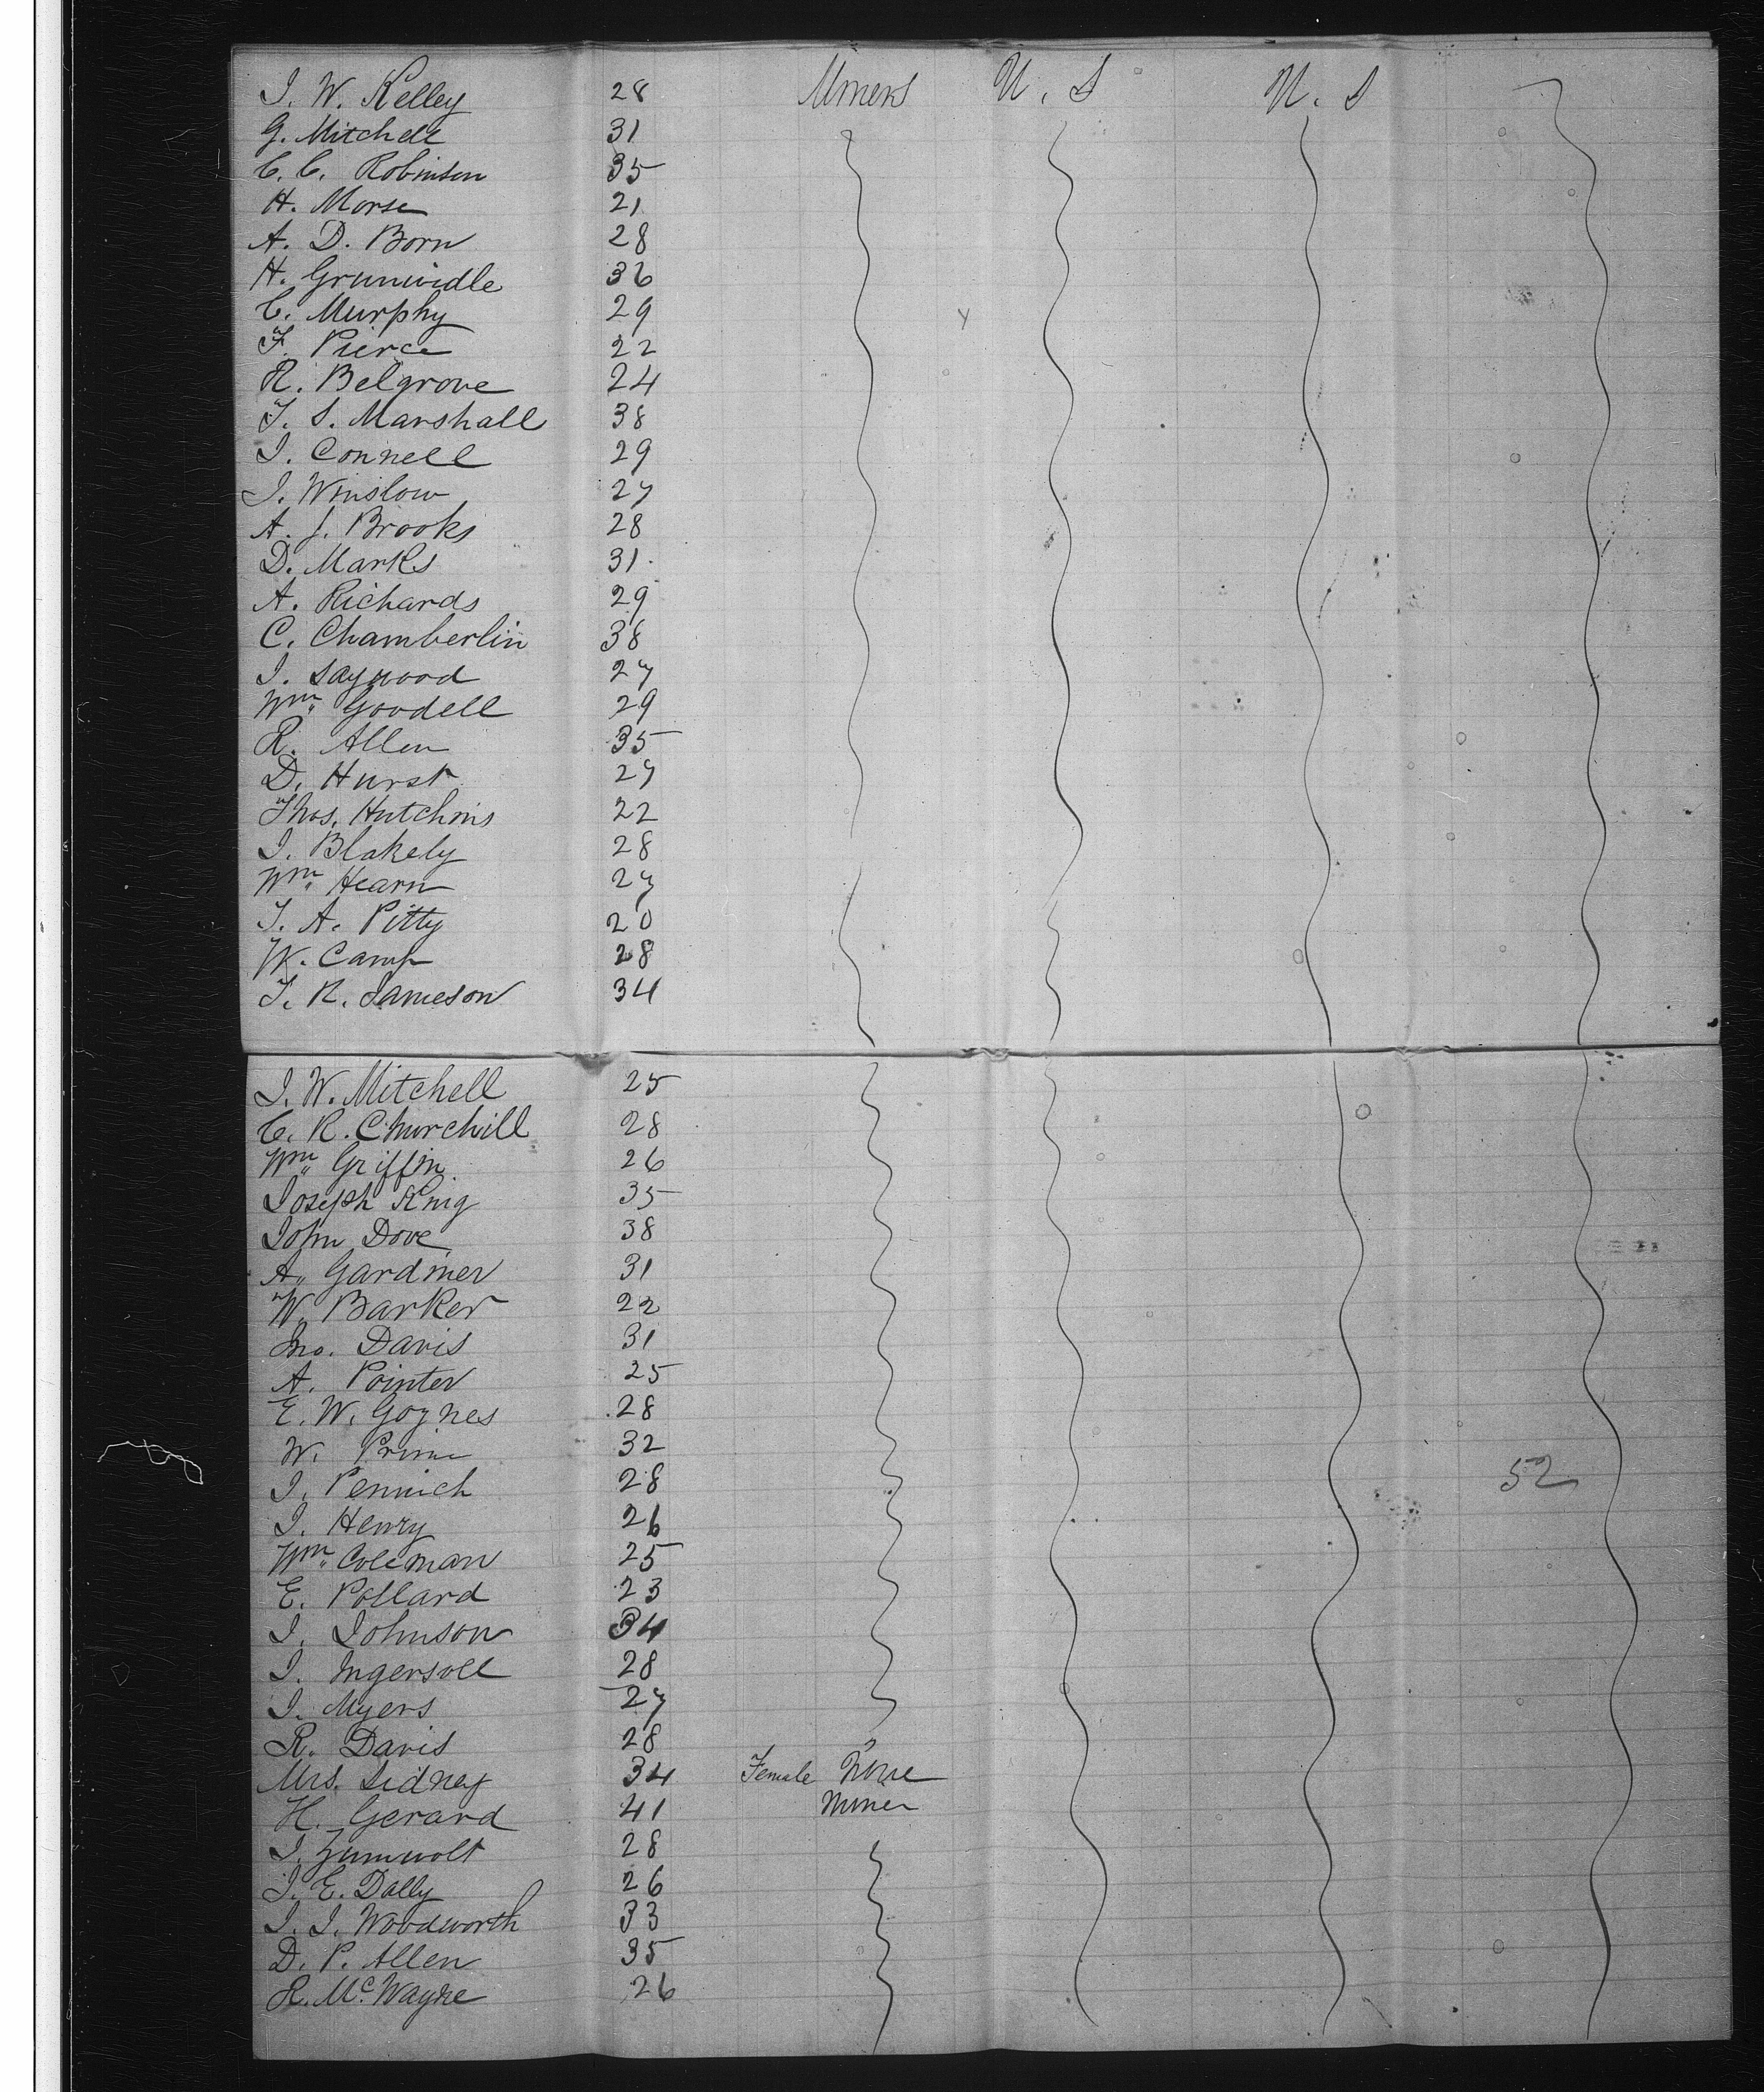 J. W. Kelley 28 Miners U. S U. S
G. Mitchell 31
C. C. Robinson 35
H. Morse 21
A. D. Born 28
H. Grunwidle 36
C. Murphy 29
F. Pierce 22
R. Belgrove 24
T. S. Marshall 38
J. Connell 29
J. Winslow 27
A. J. Brooks 28
D. Marks 31
A. Richards 29
C. Chamberlin 38
J. Saywood 27
Wm. Goodell 29
R. Allen 35
D. Hurst 27
Thos. Hutchins 22
J. Blakely 28
Wm. Hearn 27
T. A. Pitty 20
W. Camp 28
T. R. Jameson 34
J. W. Mitchell 25
C. R. Churchill 28
Wm. Griffin 26
Joseph King 35
John Dove 38
A. Gardiner 31
W. Barker 22
Jno. Davis 31
A. Pointer 25
E. W. Goynes 28
W. Prime 32
J. Pennich 28 52
J. Henry 26
Wm. Coleman 25
E. Pollard 23
J. Johnson 34
J. Ingersoll 28
J. Myers 27
R. Davis 28
Mrs. Sidney 34 Female None
H. Gerard 41 Miner
J. Zumwolt 28
J. E. Dally 26
J. J. Woodworth 33
D. P. Allen 35
R. McWayne 26